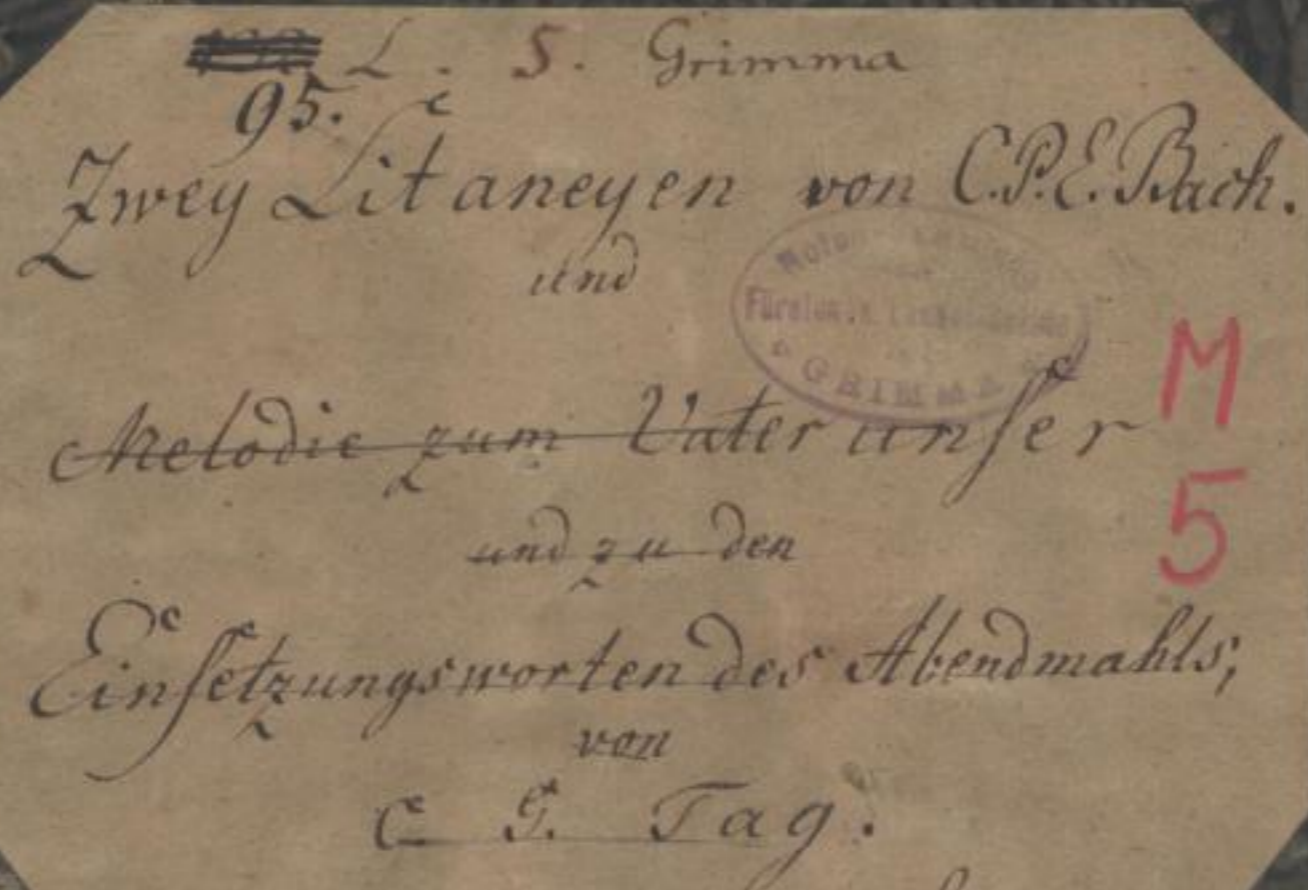 L. 5. Grimma
95.
Zwey Litaneyen von C.P.E. Bach.
und
GRIMMA
Melodie zum Vater unser
M
5
und zu den
Einsetzungsworten des Abendmahls,
von
C. G. Tag.